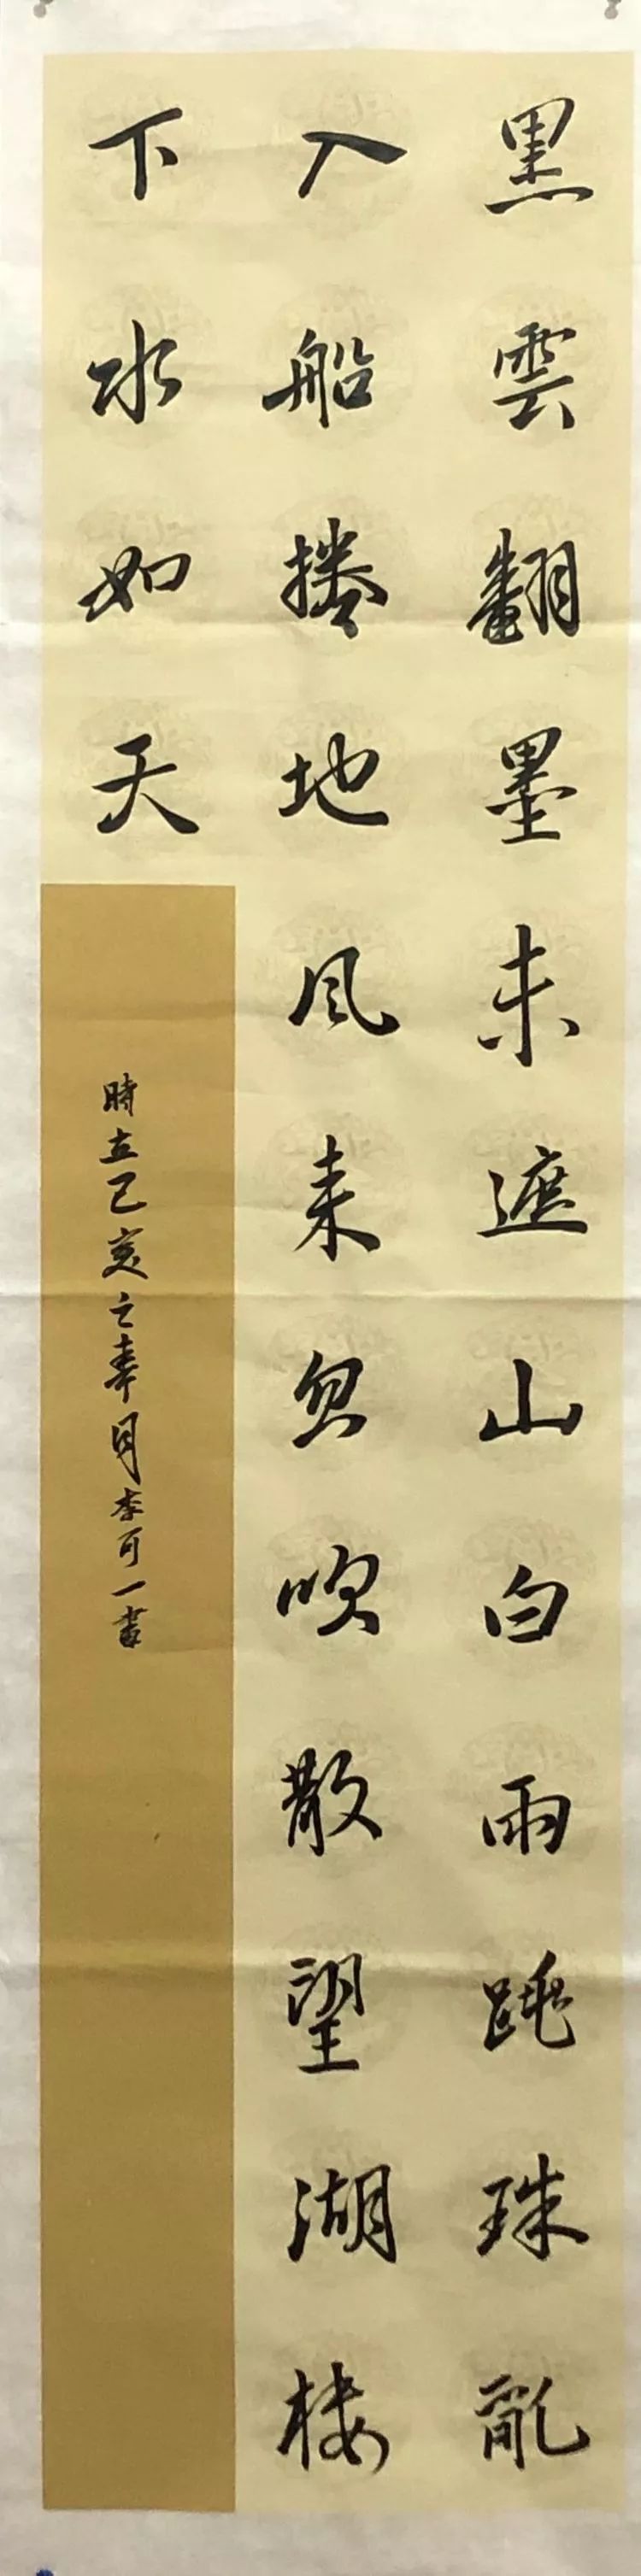 黑雲翻墨未遮山白雨跳珠亂
入船捲地風来忽吹散望湖楼
下水如天
時在己亥之春月李可一書